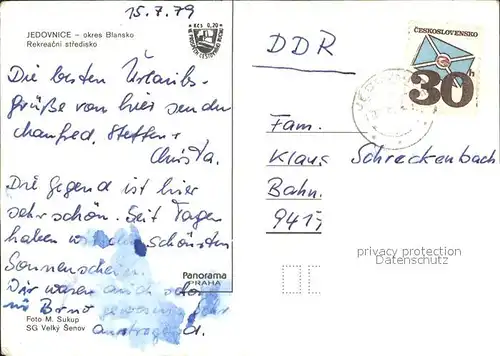 15.7.79
JEDOVNICE – okres Blansko
Rekreační středisko
Kčs 0,20
Die besten Urlaubs-
grüße von hier senden
Manfred, Steffen +
Christa.
Die Gegend ist hier
sehr schön. Seit Tagen
haben wir den schönsten
Sonnenschein.
Wir waren auch schon
in Brno
Panorama
PRAHA
Foto M. Sukup
SG Velký Šenov
DDR
ČESKOSLOVENSKO
30h
Fam.
Klaus Schreckenbach
Bahn.
privacy protection
Datenschutz